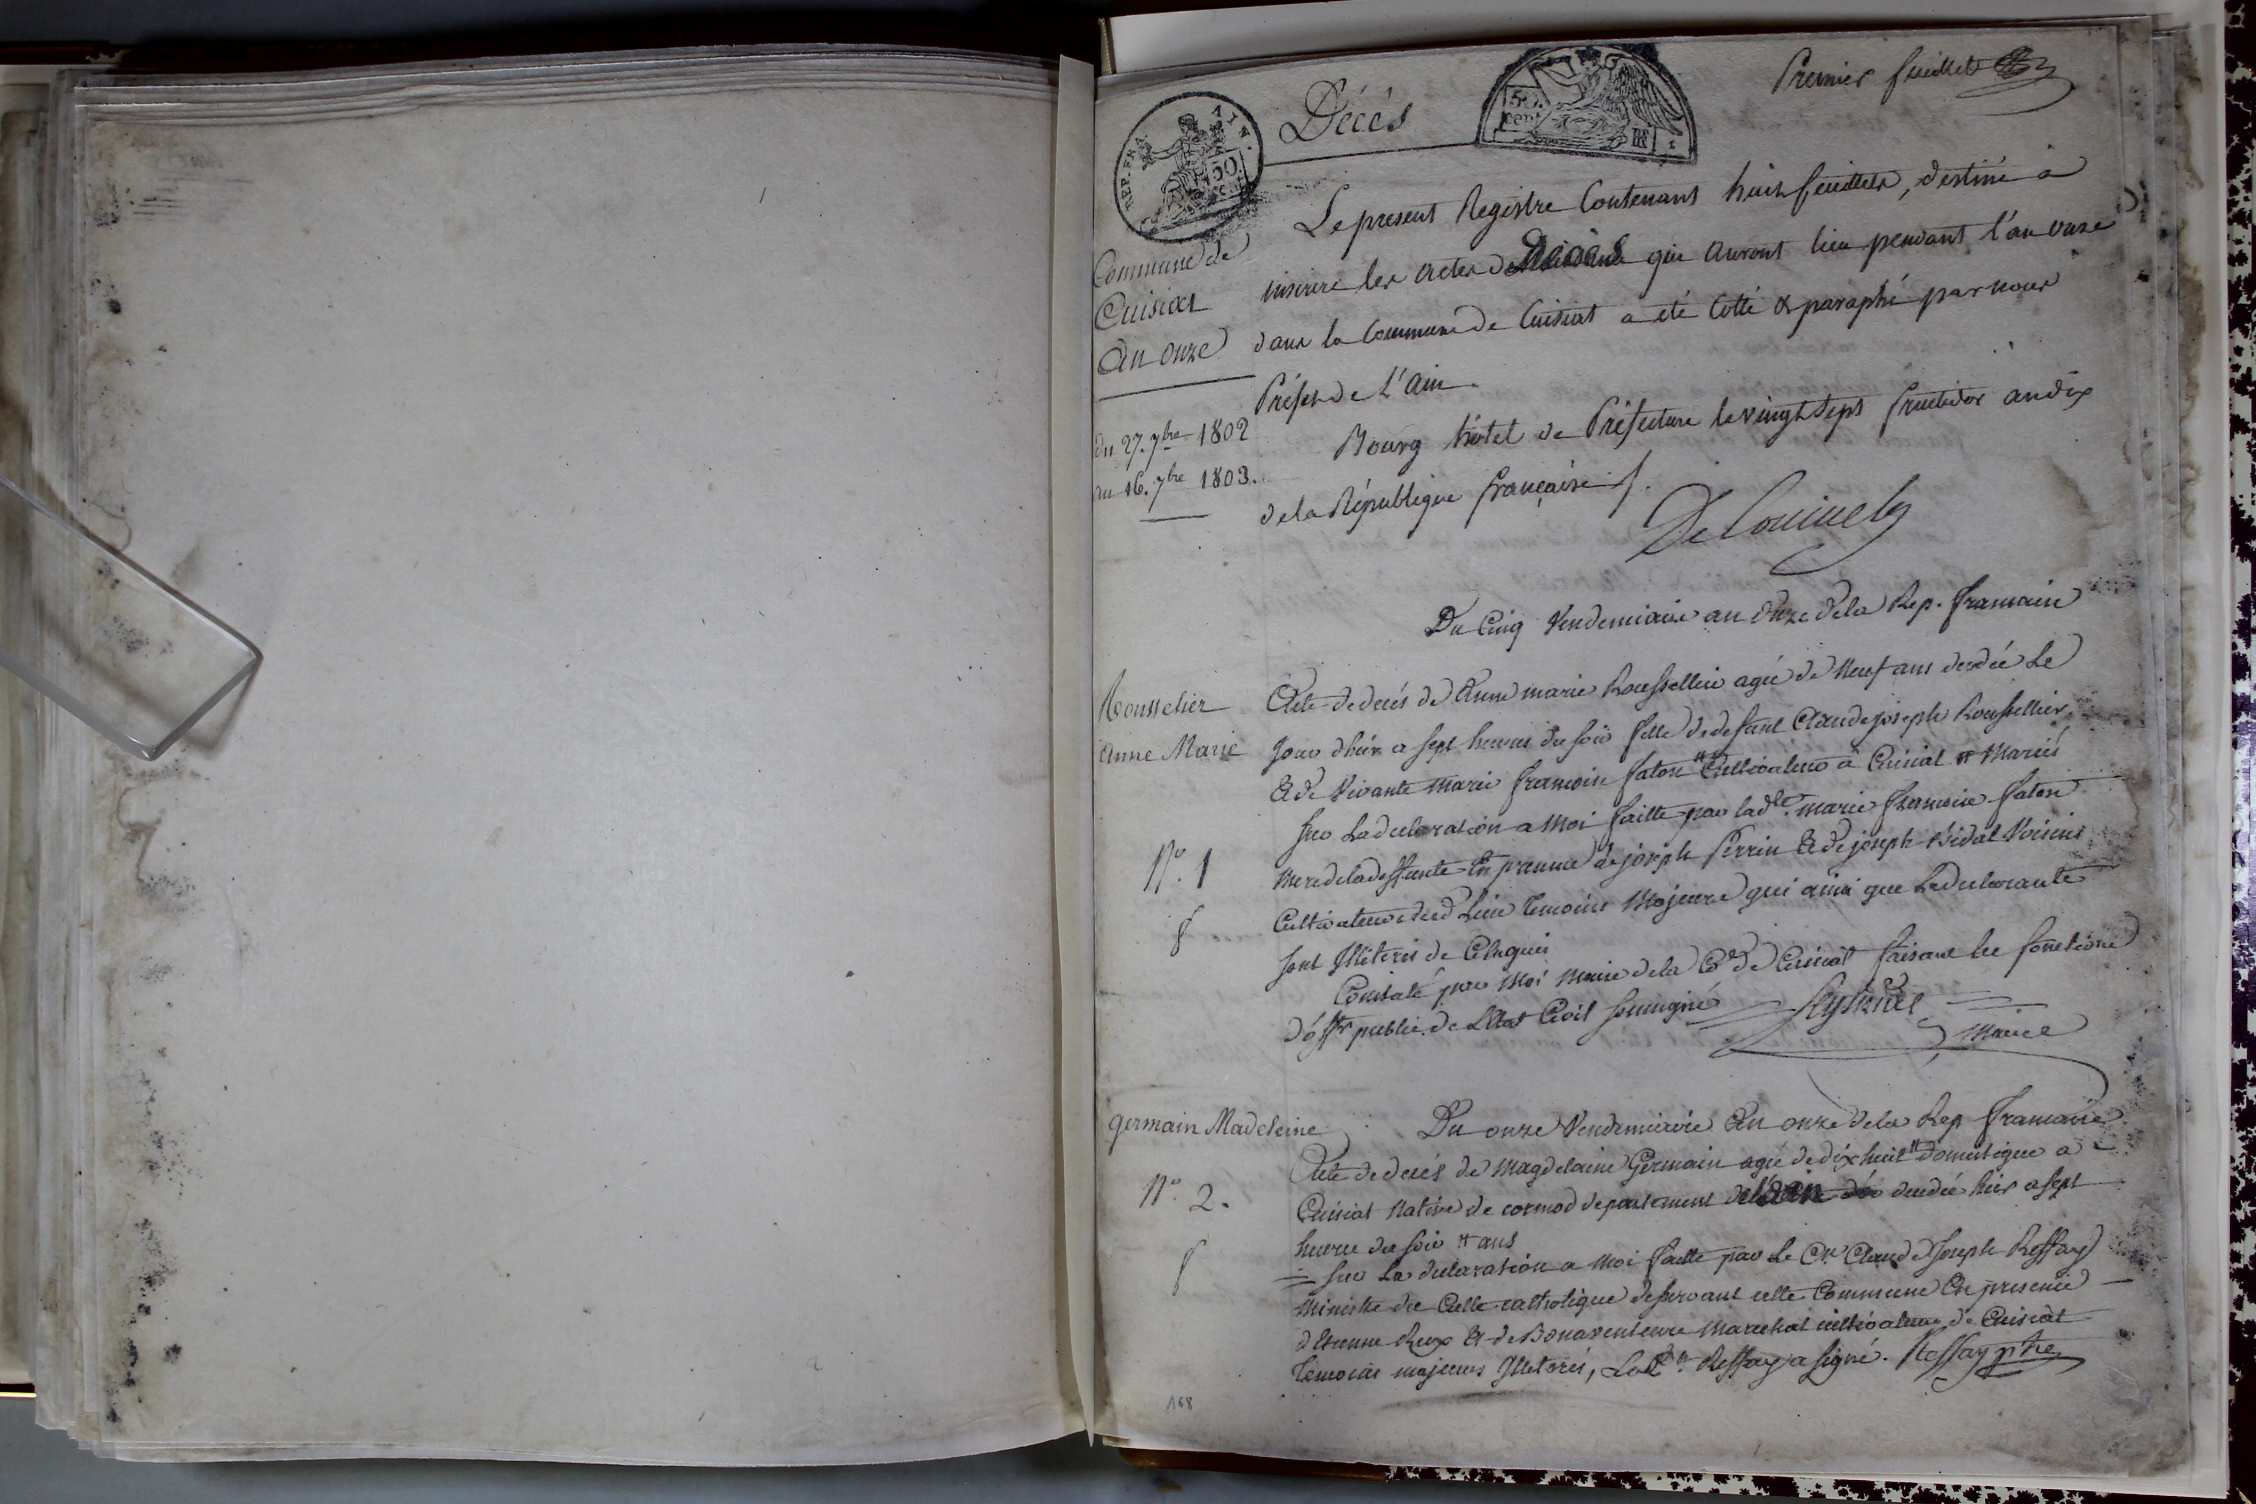 Premier feuillet
REP. FRA. AIN.
50
Décés
50.
cent
Commune de
Cuisiat
An onze
du 27. 7bre 1802
au 16. 7bre 1803.
Le present Registre Contenant huit feuillets, destiné à
inscrire les actes de Décès qui auront lieu pendant l'an onze
dans la Commune de Cuisiat a été Cotté & paraphé par nous
Préfet de l'Ain
Bourg hôtel de Préfecture le vingt sept fructidor an dix
de la République française
Du Cinq Vendemiaire an Onze de la Rep. franncaise
Rousselier
Anne Marie
N° 1
Acte de decés de Anne marie Rousselier agée de Neuf ans decedée Le
Jour d'hier a sept heures du soir fille de defunt Claude joseph Roussellier
& de Vivante Marie francoise faton # Cultivateur a Cuisiat # Mariés
Sur La declaration a Moi faitte par lade. marie francoise faton
Mere de la deffunte En presence de joseph Perrin & de joseph Vidal Voisins
Cultivateurs dud. Lieu temoins Majeurs qui ainsi que La declarante
sont Illiterés de Ce Enquis
Constaté par Moi Maire de la Cne de Cuisiat faisant les fonctions
d'offr. public. de L'Etat Civil soussigné
Maire
germain Madeleine
N° 2.
Du onze Vendemiaire An onze de la Rep francaise
Acte de decés de Magdelaine Germain agée de dix huit # domestique a
Cuisiat Native de cormod departement de l'ain decedée hier a sept
heures du soir # ans
Sur La declaration a Moi faitte par Le Cn. Claude Joseph Reffay
Ministre du Culte catholique desservant cette Commune En presence
d'Etienne Roux & de Bonaventeure Marechal cultivateurs de Cuisiat
Temoins majeurs Illeterés, Led. Cn. Reffay a signé. Reffay ptre
168